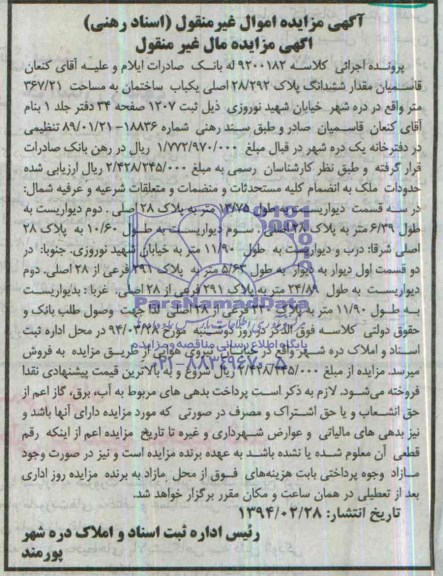 آگهی مزایده اموال غیرمنقول (اسناد رهنی)
آگهی مزایده مال غیر منقول
پرونده اجرائی کلاسه ۹۲۰۰۱۸۲ له بانک صادرات ایلام و علیه آقای کنعان
قاسمیان مقدار ششدانگ پلاک ۲۸/۲۹۲ اصلی یکباب ساختمان به مساحت ۳۶۷/۲۱
متر واقع در دره شهر خیابان شهید نوروزی ذیل ثبت ۱۲۰۷ صفحه ۳۴ دفتر جلد ۱ بنام
آقای کنعان قاسمیان صادر و طبق سند رهنی شماره ۱۸۸۳۶- ۸۹/۰۱/۲۱ تنظیمی
در دفترخانه یک دره شهر در قبال مبلغ ۱/۷۷۲/۹۷۰/۰۰۰ ریال در رهن بانک صادرات
قرار گرفته و طبق نظر کارشناسان رسمی به مبلغ ۲/۴۲۸/۲۴۵/۰۰۰ ریال ارزیابی شده
حدودات ملک به انضمام کلیه مستحدثات و منضمات و متعلقات شرعیه و عرفیه شمال:
در سه قسمت دیواریست به طول ۱۳/۷۵ متر به پلاک ۲۸ اصلی . دوم دیواریست به
طول ۶/۳۹ متر به پلاک ۲۸ اصلی . سوم دیواریست به طول ۱۰/۶۰ به پلاک ۲۸
اصلی شرقا: درب و دیواریست به طول ۱۱/۹۰ متر به خیابان شهید نوروزی. جنوبا: در
دو قسمت اول دیوار به دیوار به طول ۵/۶۳ متر به پلاک ۲۹۱ فرعی از ۲۸ اصلی. دوم
دیواریست به طول ۲۴/۸۹ متر به پلاک ۲۹۱ فرعی از ۲۸ اصلی. غربا : بدیواریست
به طول ۱۱/۹۰ متر به پلاک فرعی از ۲۸ اصلی. لذا جهت وصول طلب بانک و
حقوق دولتی کلاسه فوق الذکر در روز دوشنبه مورخ ۹۴/۰۳/۱۸ در محل اداره ثبت
اسناد و املاک دره شهر واقع در خیابان نیروی هوایی از طریق مزایده به فروش
میرسد. مزایده از مبلغ ۲/۴۲۸/۲۴۵/۰۰۰ ریال شروع و به بالاترین قیمت پیشنهادی نقدا
فروخته می‌شود. لازم به ذکر است پرداخت بدهی های مربوط به آب، برق، گاز اعم از
حق انشعاب و یا حق اشتراک و مصرف در صورتی که مورد مزایده دارای آنها باشد و
نیز بدهی های مالیاتی و عوارض شهرداری و غیره تا تاریخ مزایده اعم از اینکه رقم
قطعی آن معلوم شده یا نشده باشد به عهده برنده مزایده است و نیز در صورت وجود
مازاد وجوه پرداختی بابت هزینه‌های فوق از محل مازاد به برنده مزایده روز اداری
بعد از تعطیلی در همان ساعت و مکان مقرر برگزار خواهد شد.
تاریخ انتشار: ۱۳۹۴/۰۲/۲۸
رئیس اداره ثبت اسناد و املاک دره شهر
پورمند
ParsNamadData
پایگاه اطلاع رسانی مناقصه و مزایده
۰۲۱-۸۸۳۴۹۶۷۰-۵